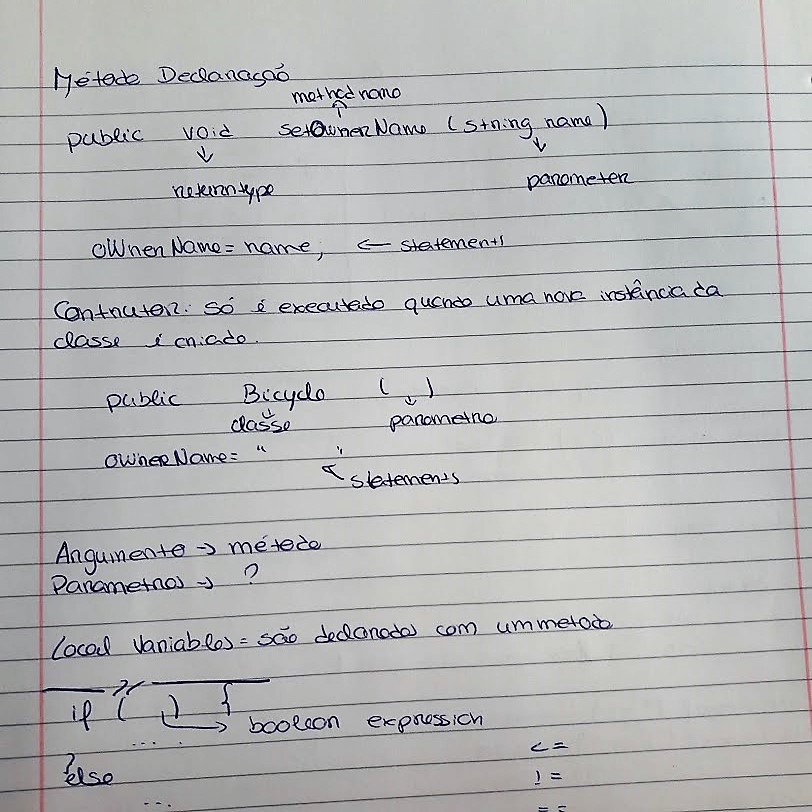 Método Declaração
method name
public void setOwnerName (string name)
return type
parameter
ownerName = name; ← statements
Contruter: só é executado quando uma nova instância da
classe é criado.
public Bicyclo ( )
classe parametro
ownerName = " "
statements
Argumento → método
Parametros → ?
Local Variables = são declarados com um metodo
if ( ) {
boolean expression
....
<=
}else
!=
...
==